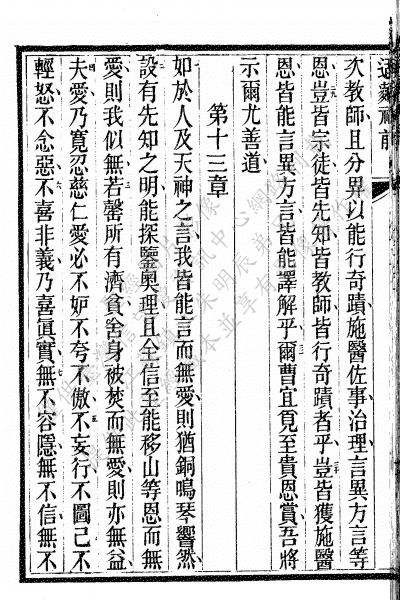 次教師且分畀以能行奇蹟施醫佐事治理言異方言等
恩豈皆宗徒皆先知皆教師皆行奇蹟者乎豈皆獲施醫
恩皆能言異方言皆能譯解乎爾曹宜覓至貴恩賞吾將
示爾尤善道
第十三章
如於人及天神之言我皆能言而無愛則猶銅鳴琴響然
設有先知之明能探鑒奧理且全信至能移山等恩而無
愛則我似無若罄所有濟貧舍身被焚而無愛則亦無益
夫愛乃寬忍慈仁愛必不妒不夸不傲不妄行不圖己不
輕怒不念惡不喜非義乃喜眞實無不容隱無不信無不